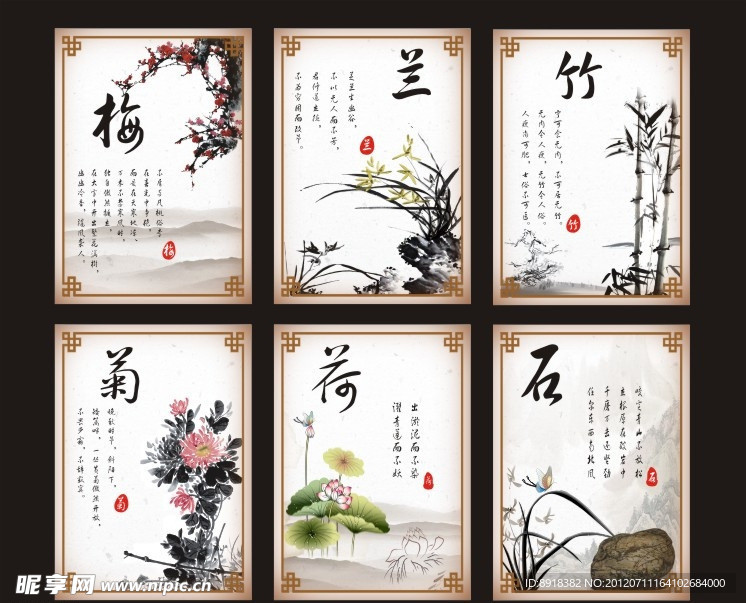 梅
不屑与凡桃俗李,
在春光中争艳。
而是在天寒地冻、
万木不禁寒风时,
独自傲然挺立,
在大雪中开出繁花满树,
幽幽冷香,随风袭人。
梅
兰
芝兰生幽谷,
不以无人而不芳,
君修道立德,
不为穷困而改节。
兰
竹
宁可食无肉,不可居无竹。
无肉令人瘦,无竹令人俗。
人瘦尚可肥,士俗不可医。
竹
菊
晚秋时节,斜阳下,
矮篱畔,一丛黄菊傲然开放,
不畏严霜,不辞寂寞。
菊
荷
出淤泥而不染
濯青莲而不妖
石
咬定青山不放松
立根原在破岩中
千磨万击还坚劲
任尔东西南北风
石
昵享网 www.nipic.cn
ID:8918382 NO:20120711164102684000